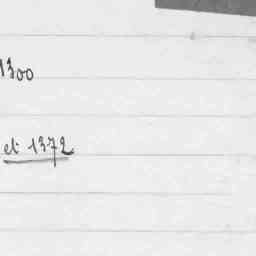 1300
et 1372